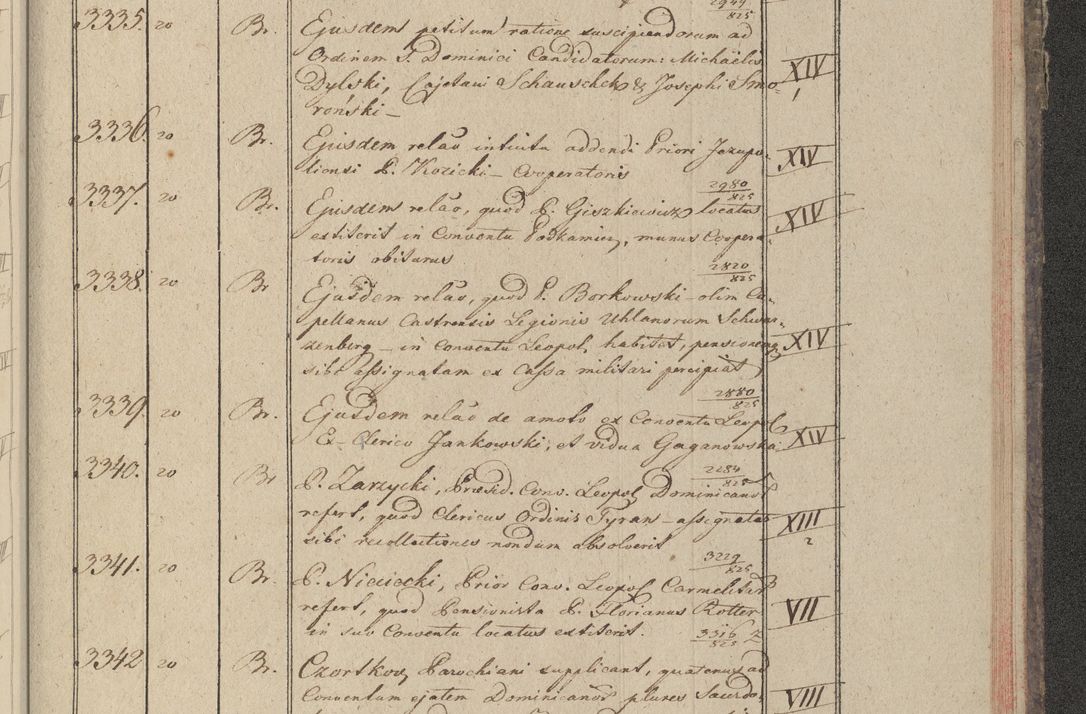 2949
825
3335. 20 Br. Ejusdem petitum ratione suscipiendorum ad
Ordinem S. Dominici Candidatorum: Michaëlis
Dylski, Cajetani Schauschek & Josephi Smo- XIV
1
roński —
3336. 20 Br. Ejusdem relao intuitu addendi Priori Jezupo-
liensi P. Kozicki — Cooperatoris XIV
2980
825
3337. 20 Br. Ejusdem relao, quod P. Giszkiewicz locatus
extiterit in Conventu Podkamien, munus Coopera- XIV
toris obiturus
2820
825
3338. 20 Br Ejusdem relao, quod P. Borkowski — olim Ca-
pellanus Castrensis Legionis Uhlanorum Schwar-
zenberg — in Conventu Leopol, habitet, pensionemq XIV
sibi assignatam ex Cassa militari percipiat
2880
825
3339. 20 Br. Ejusdem relao de amoto ex Conventu Leopol
Ex-Clerico Jankowski, et vidua Gaganowska XIV
2284
825
3340. 20 Br P. Zarzycki, Præsid. Conv. Leopol Dominicanor
refert, quod Clericus Ordinis Tyran — assignatas XIII
2
sibi recollectiones nondum absolverit
3229
825
3341. 20 Br. P. Nieciecki, Prior Conv. Leopol Carmelitar
refert, quod Pensionista P. Florianus Rotter VII
in suo Conventu locatus extiterit.
3316 2
825
3342 20 Br. Czortkov, Parochiani supplicant, quatenus ad
Conventum ejatem Dominicanor plures Sacerdo- VIII